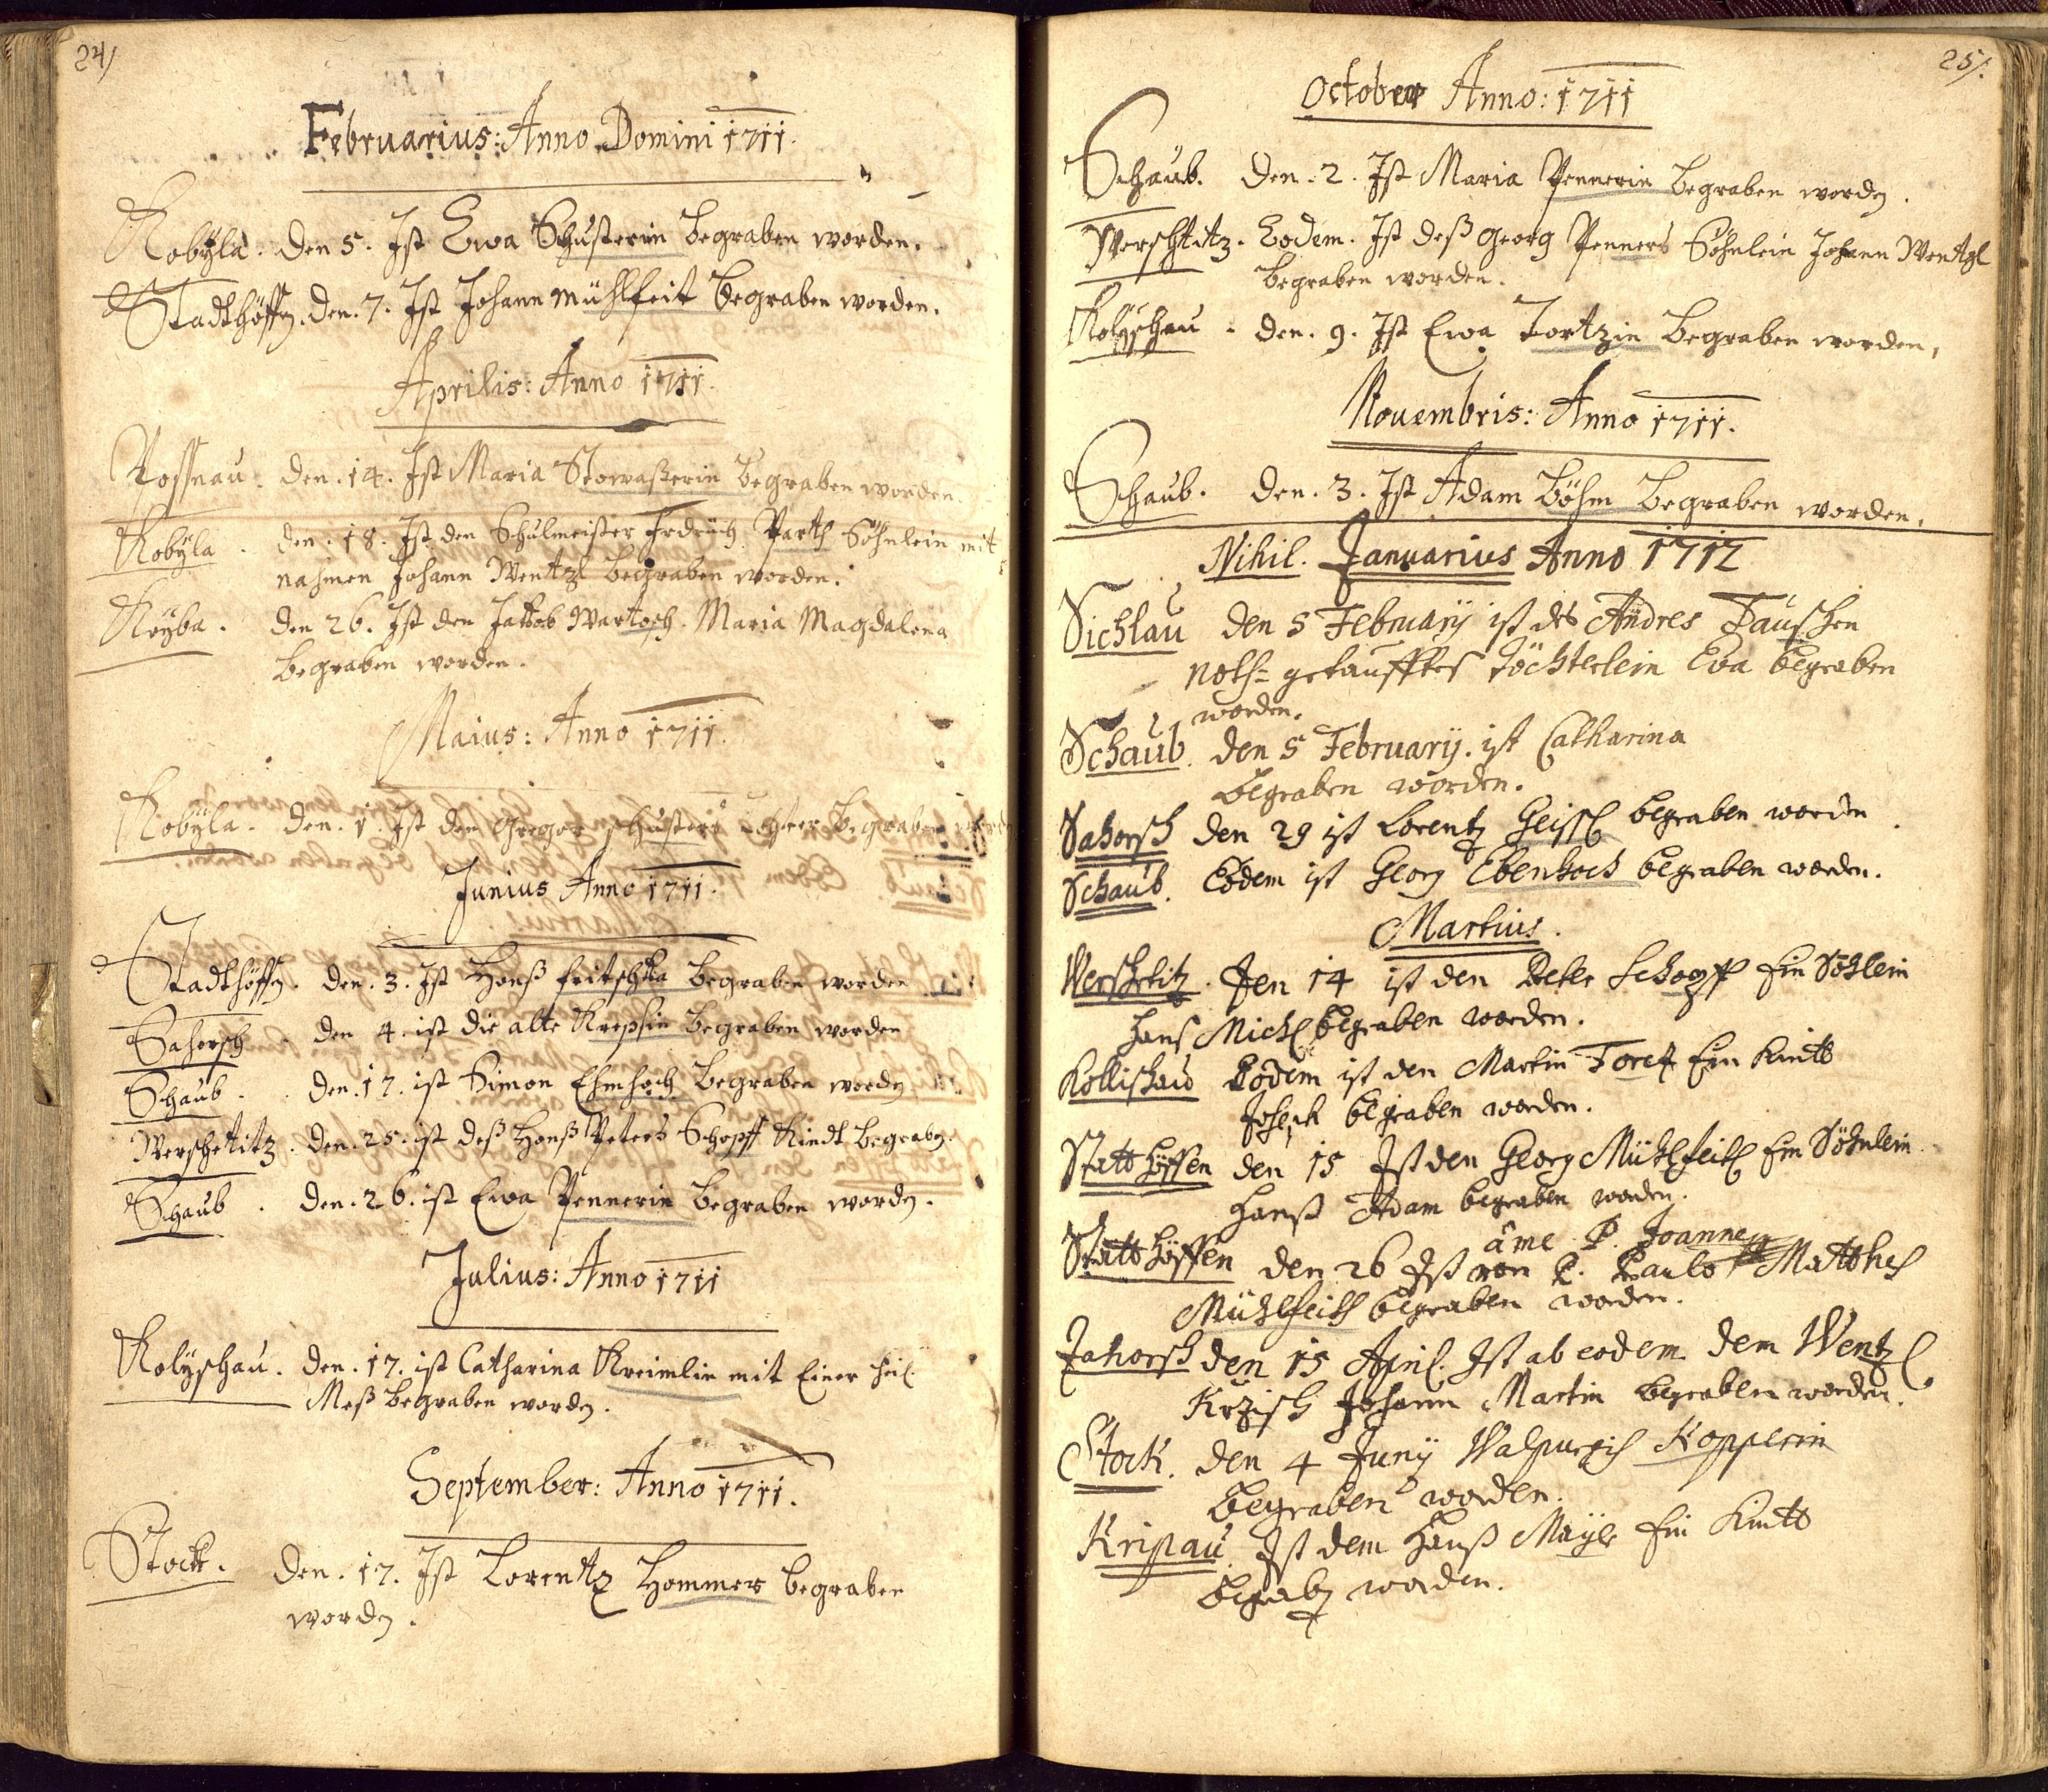 24/
Februarius: Anno Domini 1711.
Kobÿla. Den 5. Ist Ewa Schusterin Begraben worden.
Stadthöffn. Den. 7. Ist Johann Mühlfeit Begraben worden.
Aprilis: Anno 1711.
Possnau. Den. 14. Ist Maria Stowasserin Begraben worden.
Kobÿla. Den. 18. Ist den Schulmeister Fridrich Parth Söhnlein mit
nahmen Johann Wentzl Begraben worden.
Kryba. Den 26. Ist den Jakob Wartosch. Maria Magdalena
Begraben worden.
Maius: Anno 1711.
Kobÿla. Den. 1. Ist den Gregor Schusters Begraben
Junius Anno 1711.
Stadthöffn. Den. 3. Ist Honß fritschka Begraben worden
Sahorsch. Den 4. ist die alte Krepsin Begraben worden
Schaub. Den. 17. ist Simon Ehmhoch Begraben wordn
Werschetitz. Den. 25. ist deß Honß Peters Schopff Kindt Begrabn.
Schaub. Den. 26. ist Ewa Pennerin Begraben wordn.
Julius: Anno 1711
Kolÿschau. Den. 17. ist Catharina Kreimlin mit Einer heil.
Meß Begraben wordn.
September: Anno 1711.
Stock. Den. 17. Ist Lorentz Hommer begraben
wordn.
25/.
October Anno: 1711
Schaub. Den. 2. Ist Maria Pennerin Begraben wordn.
Werschtitz. Eodem. Ist deß Georg Penners Söhnlein Johann Wentzl
Begraben worden.
Kolÿschau. Den. 9. Ist Ewa Tortzin Begraben worden,
Nouembris: Anno 1711.
Schaub. Den. 3. Ist Adam Böhm Begraben worden.
Nihil. Januarius Anno 1712
Sichlau den 5 Februarij ist des Andres Tauschen
noth= getaufftes Töchterlein Eva begraben
worden.
Schaub. den 5 Februarij. ist Catharina
begraben worden.
Sahorsch den 29 ist Lorentz Geissl begraben worden.
Schaub. Eodem ist Georg Ebenhoch begraben worden.
Martius.
Werschetitz. Den 14 ist den Peter Schopff Ein Söhlein
Hans Michl begraben worden.
Kollischau Eodem ist den Martin Toretz Ein Kindt
Joseph begraben worden.
Statt Höffen den 15 Ist den Georg Mühlfeith Ein Söhnlein
Hanß Adam begraben worden.
âme P. Joanne
Statt Höffen den 26 Ist von P. Paulo Matthes
Mühlfeith begraben worden.
Zahorsch den 15 April. Ist ab eodem dem Wentzl
Krzisch Johann Martin begraben worden.
Stock. den 4 Junij Walpurgis Kopperin
begraben worden.
Kripau. Ist dem Hanß Mayer Ein Kindt
Begrabn worden.